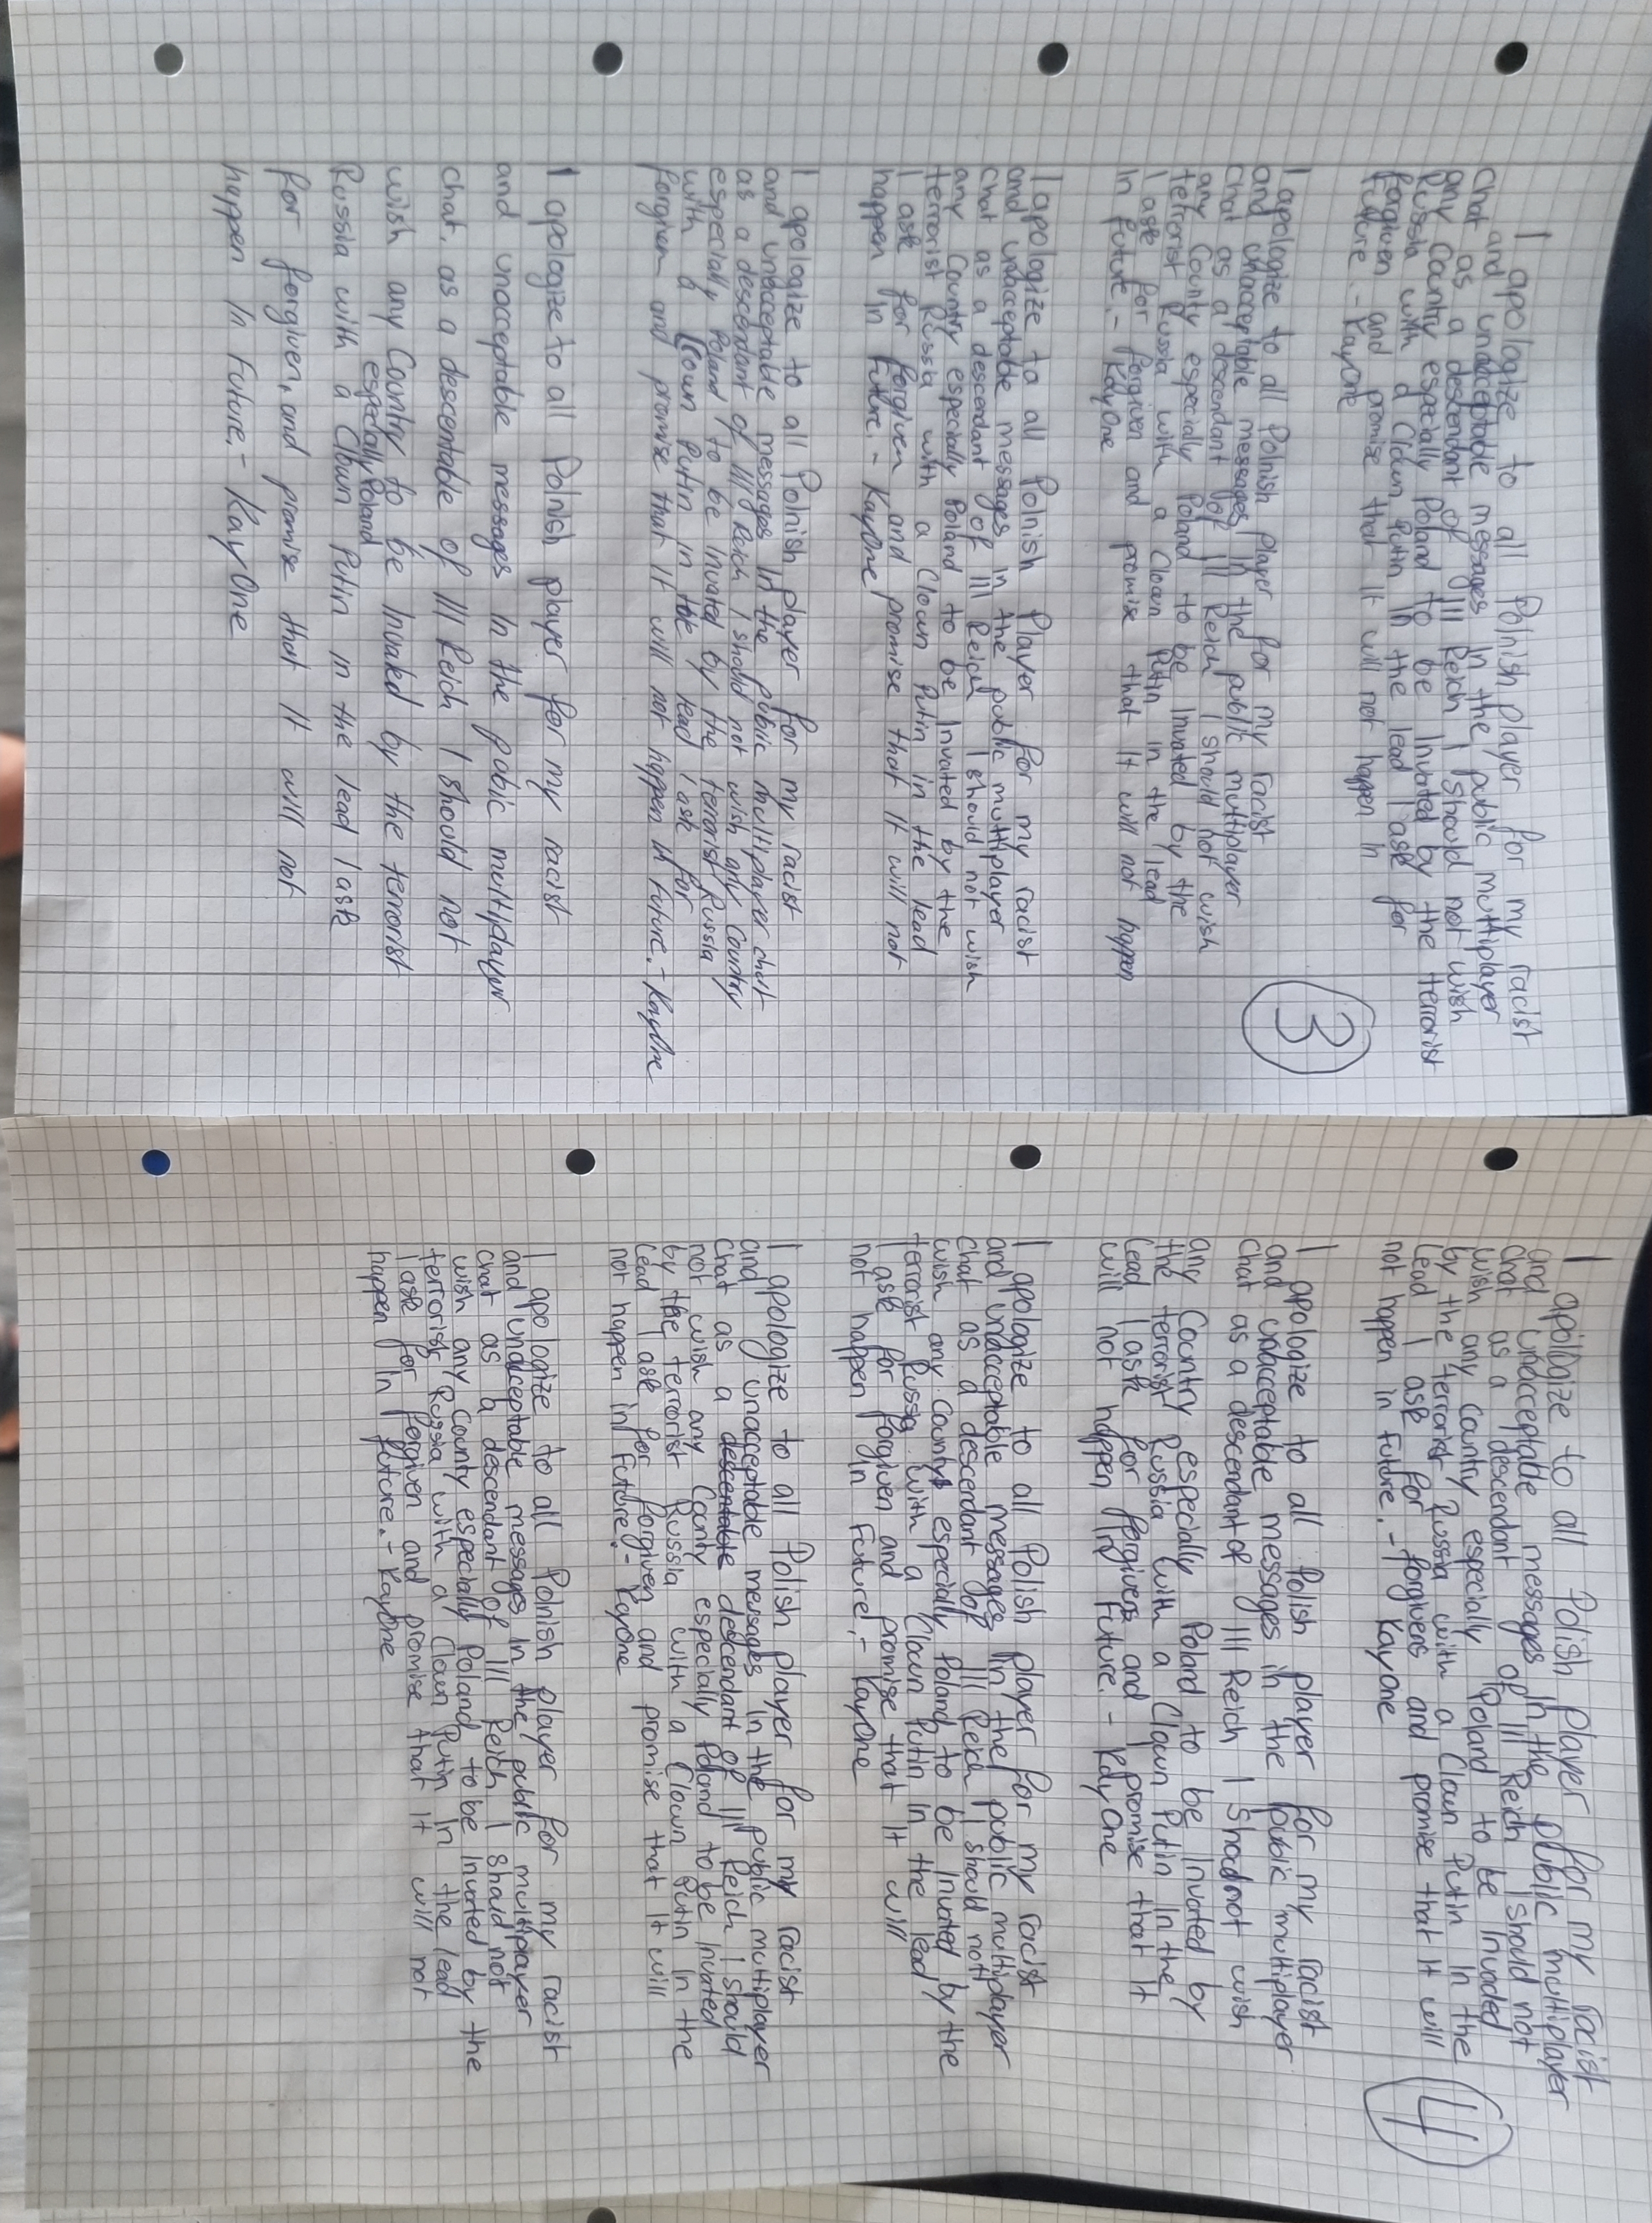 3
I apologize to all Polnish player for my racist
and unacceptable messages in the public multiplayer
chat as a descendant of III Reich I should not wish
any Country especially Poland to be Invated by the terrorist
Russia with a Clown Putin in the lead I ask for
forgiven and promise that it will not happen in
future. - KayOne
I apologize to all Polnish player for my racist
and unacceptable messages in the public multiplayer
chat as a descendant of III Reich I should not wish
any County especially Poland to be Invated by the
terrorist Russia with a Clown Putin in the lead
I ask for forgiven and promise that it will not happen
in future. - KayOne
I apologize to all Polnish player for my racist
and unacceptable messages in the public multiplayer
chat as a descendant of III Reich I should not wish
any Country especially Poland to be Invated by the
terrorist Russia with a Clown Putin in the lead
I ask for forgiven and promise that it will not
happen in future. - KayOne
I apologize to all Polnish player for my racist
and unacceptable messages in the public multiplayer chat
as a descendant of III Reich I should not wish any Country
especially Poland to be Invated by the terrorist Russia
with a Clown Putin in the lead I ask for
forgiven and promise that it will not happen in future. - KayOne
I apologize to all Polnish player for my racist
and unacceptable messages in the public multiplayer
chat, as a descentable of III Reich I should not
wish any Country to be Invaked by the terrorist
especially Poland
Russia with a Clown Putin in the lead I ask
for forgiven, and promise that it will not
happen in future. - KayOne
4
I apologize to all Polish player for my racist
and unacceptable messages in the public multiplayer
chat as a descendant of III Reich I should not
wish any Country especially Poland to be Invaded
by the terrorist Russia with a Clown Putin in the
lead I ask for forgivens and promise that it will
not happen in future. - KayOne
I apologize to all Polish player for my racist
and unacceptable messages in the public multiplayer
chat as a descendant of III Reich I shoud not wish
any Country especially Poland to be Invated by
the terrorist Russia with a Clown Putin in the
lead I ask for forgivens and promise that it
will not happen in future. - KayOne
I apologize to all Polish player for my racist
and unacceptable messages in the public multiplayer
chat as a descendant of III Reich I should nott
wish any Country especially Poland to be Invated by the
terrorist Russia with a Clown Putin in the lead
I ask for forgiven and promise that it will
not happen in future. - KayOne
I apologize to all Polish player for my racist
and unacceptable messages in the public multiplayer
chat as a descentable descendant of III Reich I should
not wish any County especially Poland to be Invated
by the terrorist Russia with a Clown Putin in the
lead I ask for forgiven and promise that it will
not happen in future. - KayOne
I apologize to all Polnish player for my racist
and unacceptable messages in the public multiplayer
chat as a descendant of III Reich I should not
wish any County especially Poland to be Invated by the
terrorist Russia with a Clown Putin in the lead
I ask for forgiven and promise that it will not
happen in future. - KayOne